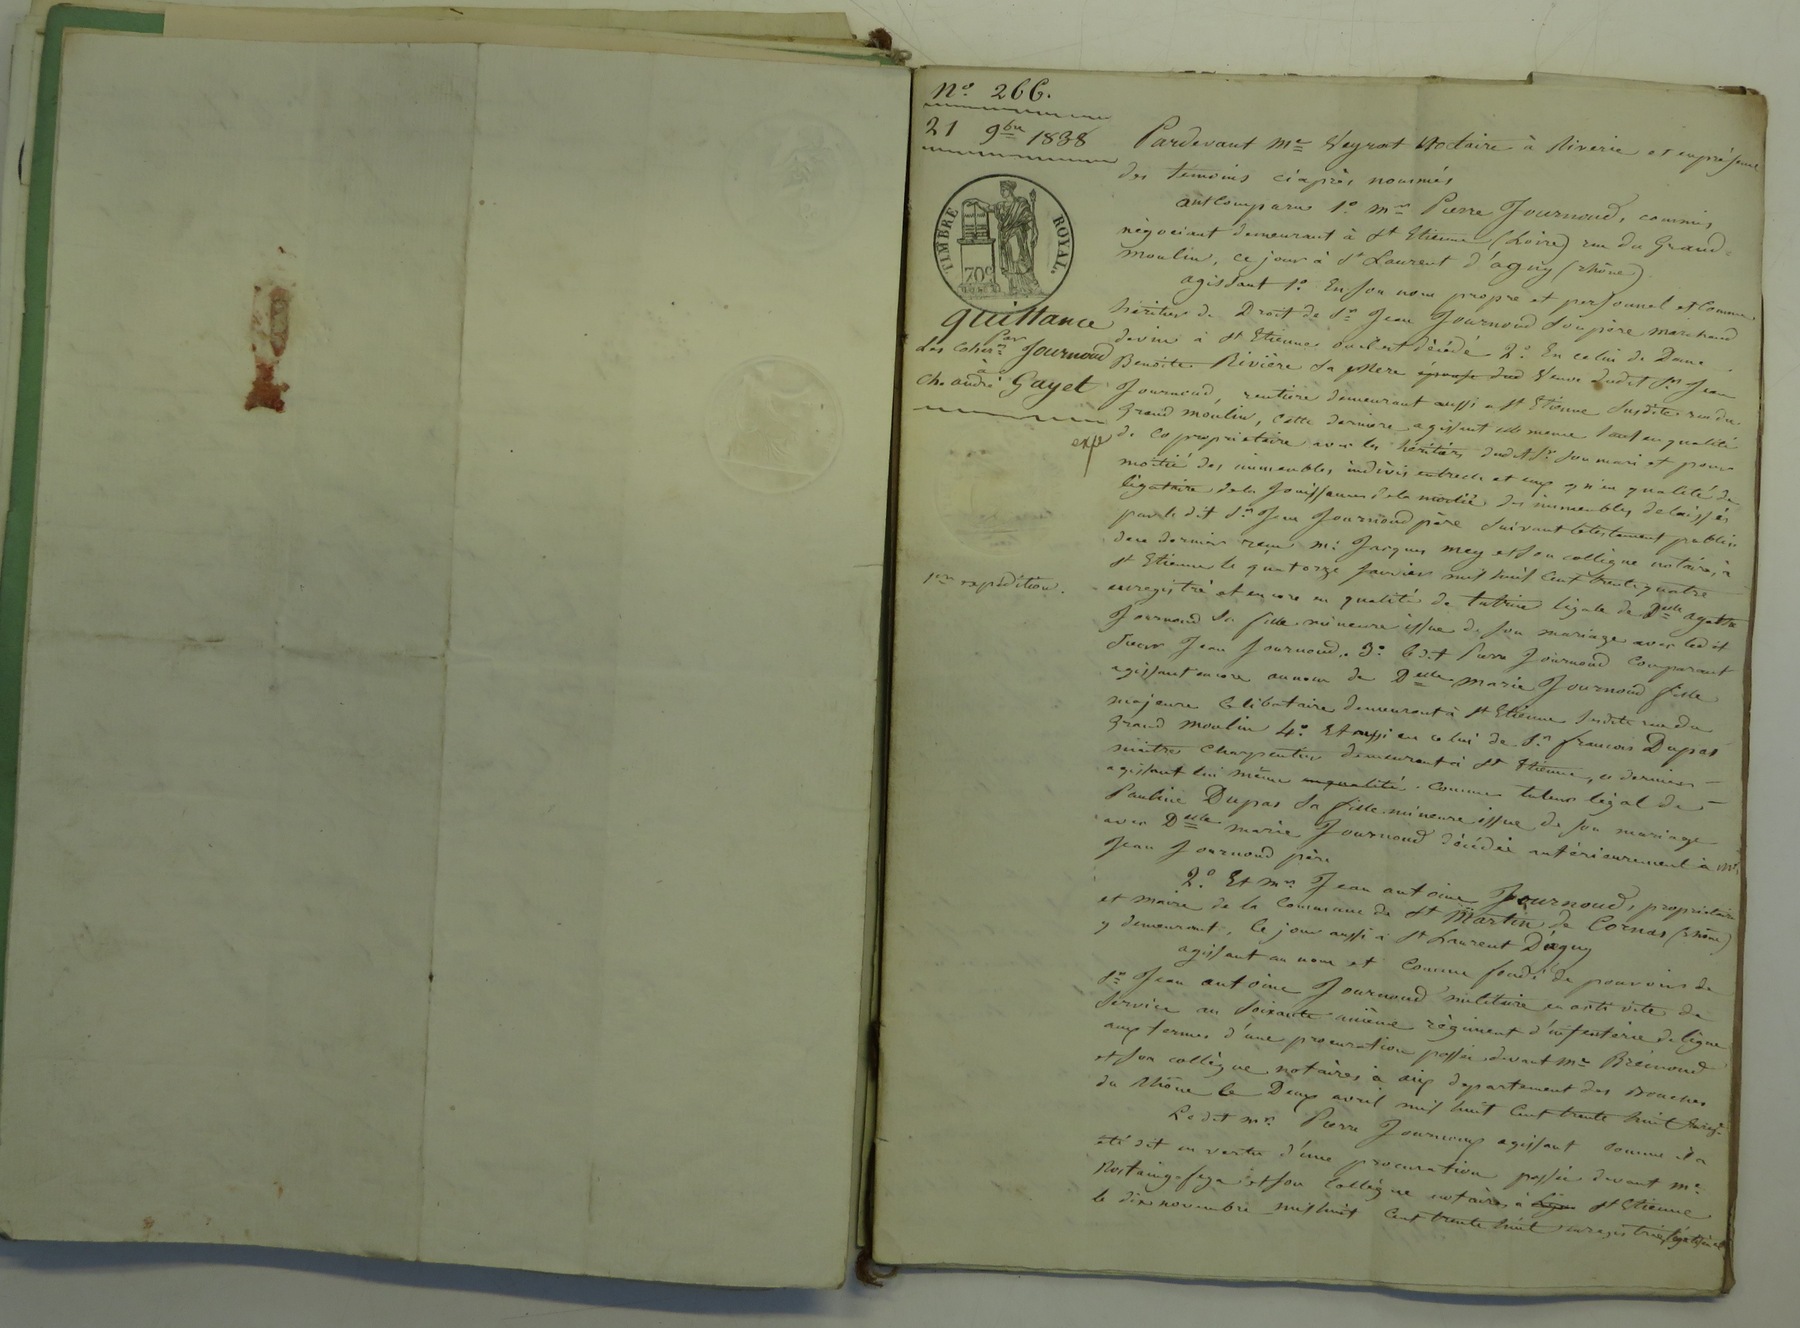 n.º 266.
21 9bre 1838
TIMBRE ROYAL.
70c
quittance
Par
Les Cohers Journoud
à
Ch. andré Gayet
exp
1ere expédition.
Pardevant me Veyrat Notaire à Riverie et en présence
des temoins ciaprès nommés
ont Comparu 1.º mr Pierre Journoud, commis
négociant demeurant à St Etienne (Loire) rue du Grand-
moulin, ce jour à St Laurent d'agny (rhône)
agissant 1.º En son nom propre et personnel et Comme
héritier de Droit de Sr Jean Journoud Son père marchand
de vin à St Etienne où il est décédé 2.º En celui de Dame
Benoite Rivière Sa mere Veuve dudit Sr Jean
Journoud, rentière demeurant aussi à St Etienne Susdite rue du
Grand moulin, Cette dernière agissant elle meme tant en qualité
de Copropriétaire avec les héritiers dudit Sr Son mari et pour
moitié des immeubles indivis entr'elle et eux qu'en qualité de
légataire de la Jouissance de la moitié des immeubles délaissés
par le dit Sr Jean Journoud père Suivant le testament public
de ce dernier reçu me Jacques mey et Son collègue notaires à
St Etienne le quatorze Janvier mil huit Cent trente quatre
enregistré et encore en qualité de tutrice légale de Dlle agathe
Journoud Sa fille mineure issue de Son mariage avec ledit
Sieur Jean Journoud. 3.º le dit Pierre Journoud Comparant
agissant encore au nom de Delle marie Journoud fille
majeure Célibataire demeurant à St Etienne Susdite rue du
Grand moulin 4.º Et aussi en celui de Sr francois Dupas
maitre Charpentier demeurant à St Etienne, ce dernier
agissant lui même en qualité comme tuteur légal de
Pauline Dupas Sa fille mineure issue de Son mariage
avec Delle marie Journoud décédée antérieurement à mr
Jean Journoud père
2.º Et mr Jean antoine Journoud, propriétaire
et maire de la Commune de St Martin de Cornas (rhône)
y demeurant, Ce jour aussi à St Laurent D'agny
agissant au nom et Comme fondé de pouvoirs de
Sr Jean antoine Journoud militaire en activité de
Service au Soixante uniême régiment d'infanterie de ligne
aux termes d'une procuration passée devant me Brémond
et Son collègue notaires à aix département des Bouches
du Rhône le Deux avril mil huit Cent trente huit
Le dit mr Pierre Journoud agissant comme il a
été dit en vertu d'une procuration passée devant me
et Son Collègue notaires à St Etienne
le dix novembre mil huit Cent trente huit enregistrée